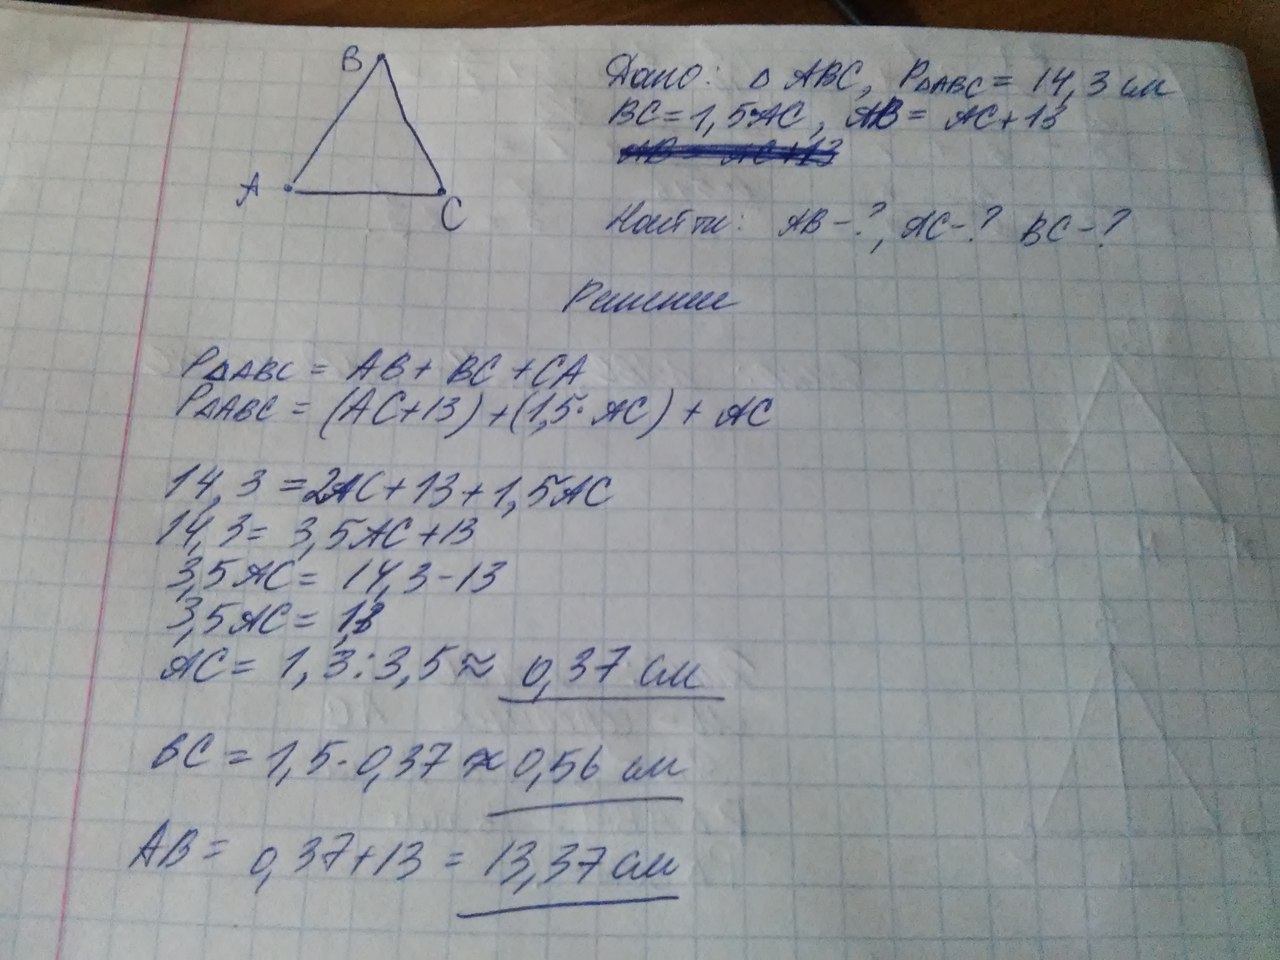 B
A
C
Дано: Δ ABC, PΔABC = 14,3 см
BC = 1,5 AC, AB = AC + 13
Найти: AB - ?, AC - ? BC - ?
Решение
PΔABC = AB + BC + CA
PΔABC = (AC+13) + (1,5 · AC) + AC
14,3 = 2AC + 13 + 1,5AC
14,3 = 3,5AC + 13
3,5AC = 14,3 - 13
3,5AC = 1,3
AC = 1,3 : 3,5 ≈ 0,37 см
BC = 1,5 · 0,37 ≈ 0,56 см
AB = 0,37 + 13 = 13,37 см